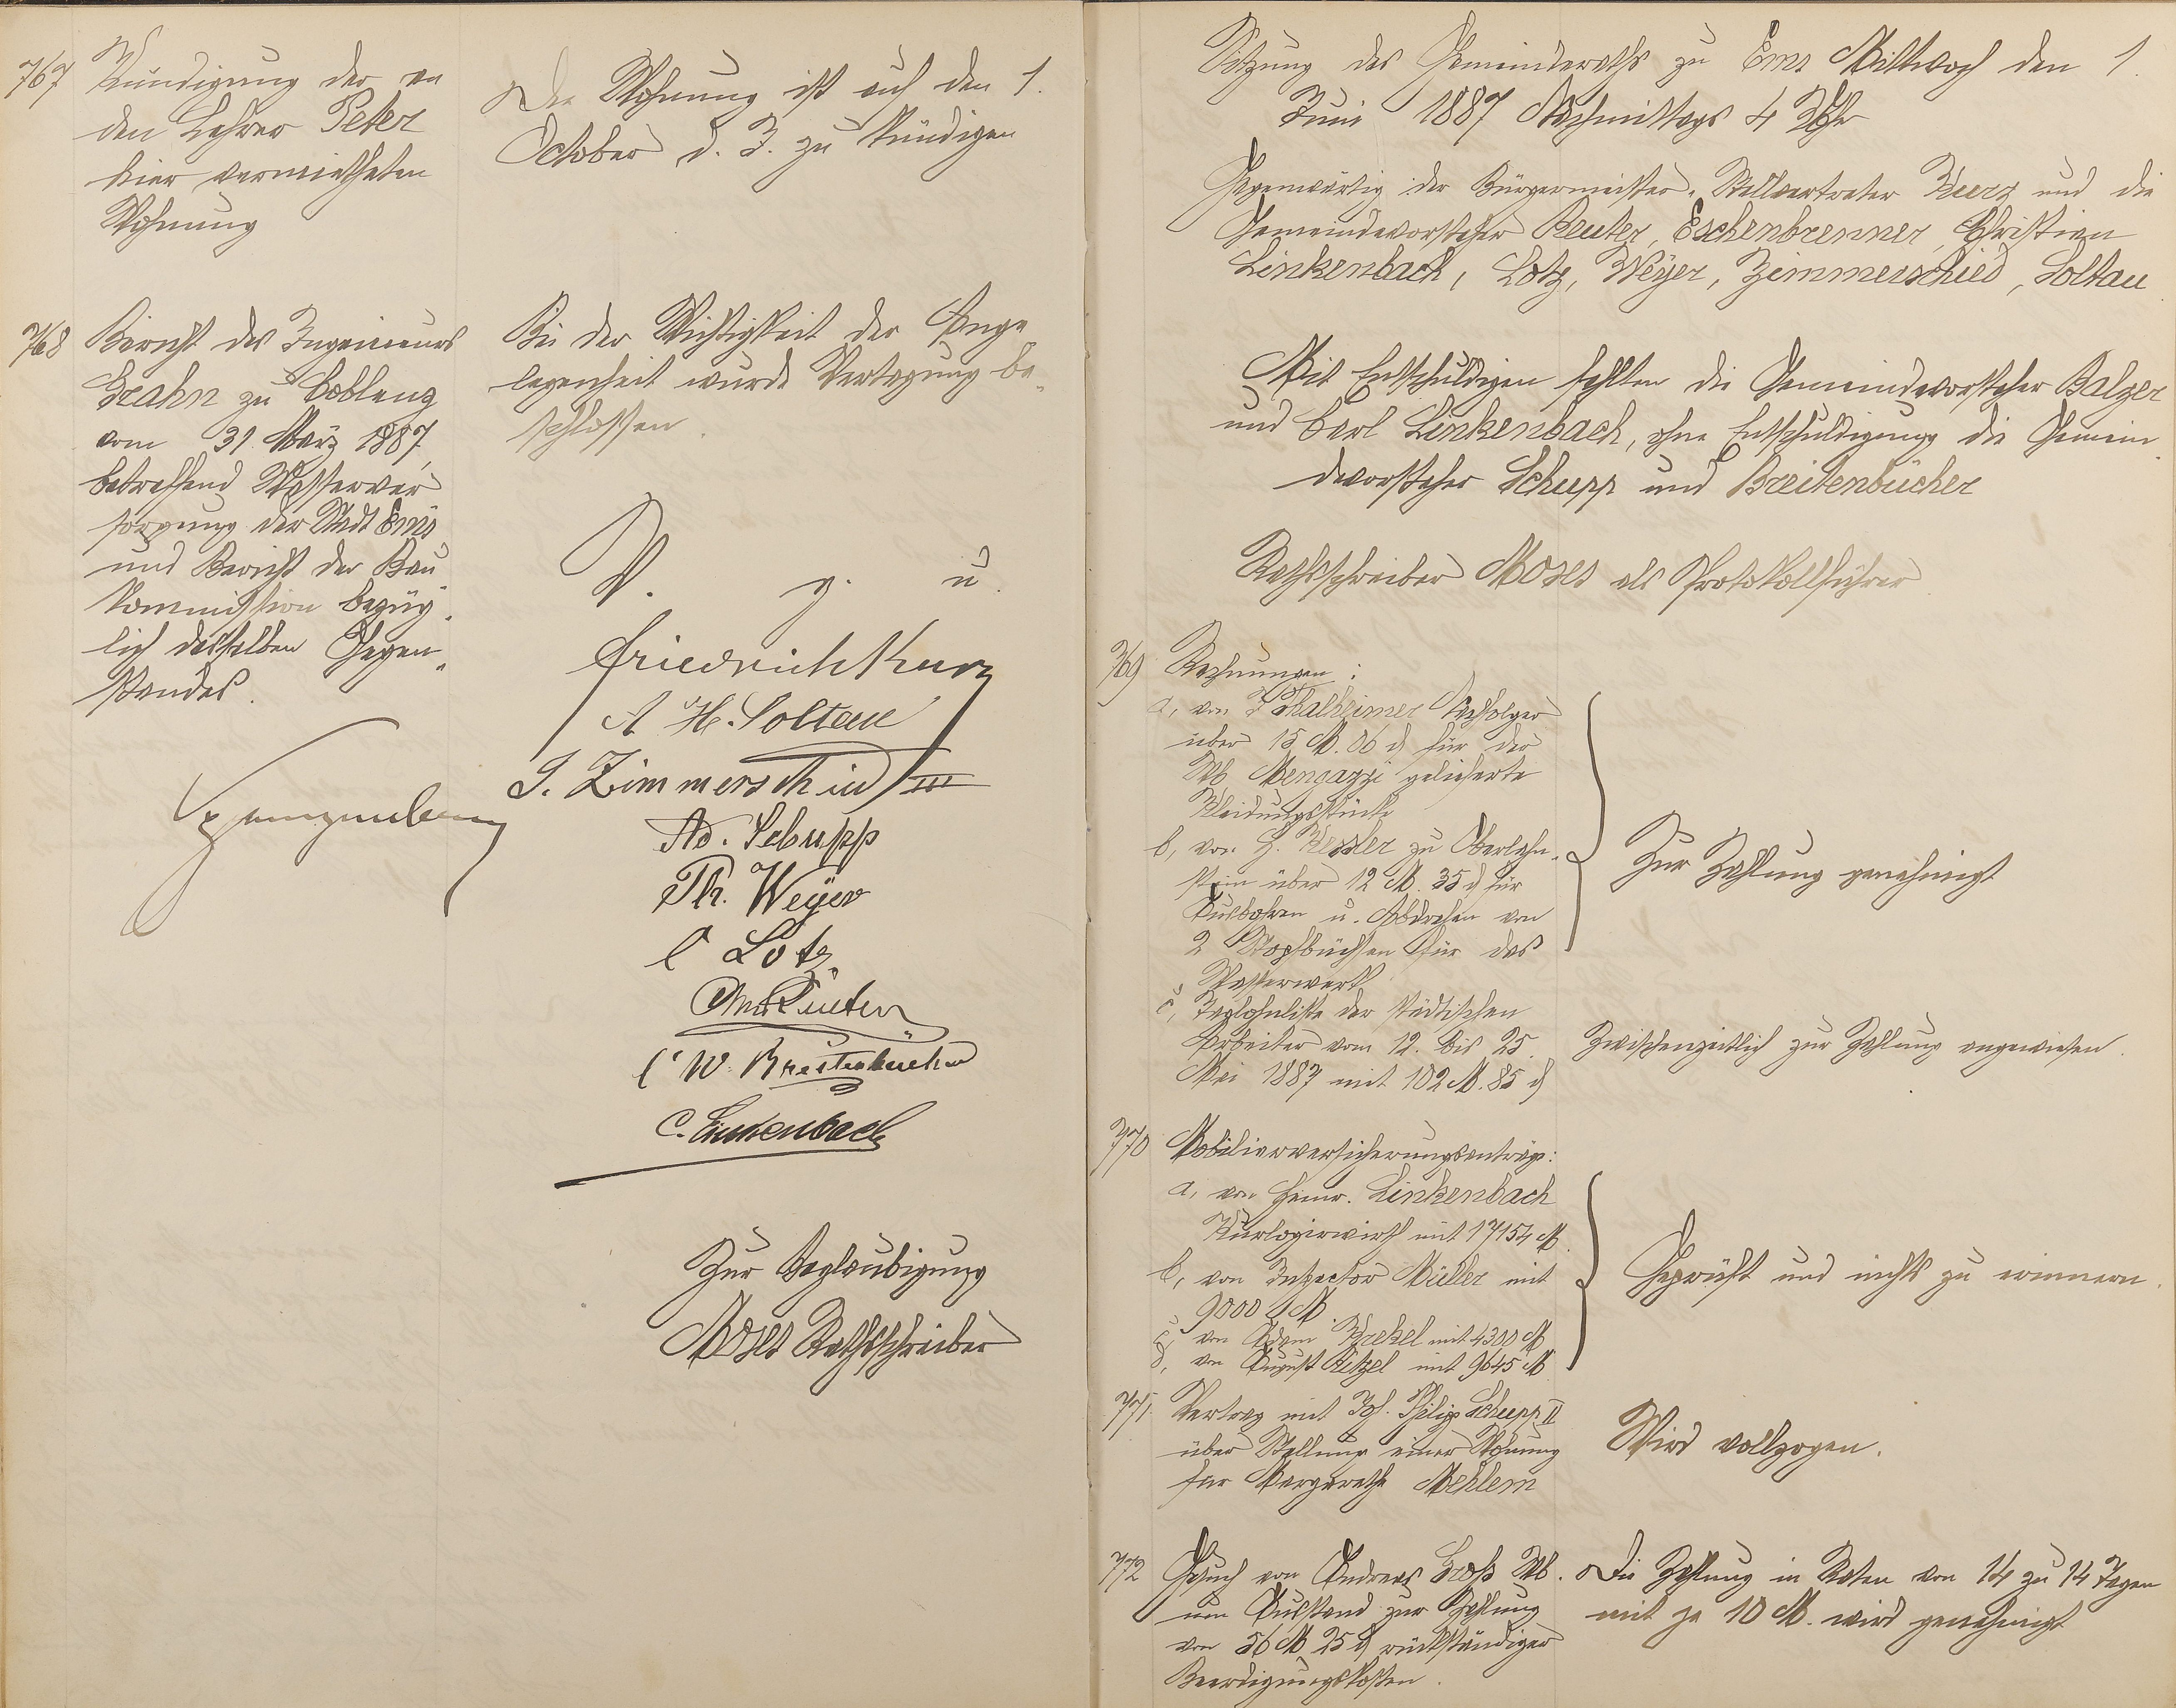 767 Kündigung der an
den Lehrer Peter
hier vermietheten
Wohnung
Die Wohnung ist auf den 1.
October d. J. zu kündigen
768 Bericht des Ingenieurs
Grahn zu Coblenz
vom 31. März 1887,
betreffend Wasserver
sorgung der Stadt Ems
und Bericht der Bau
kommission bezüg„
lich desselben Gegen„
standes.
Bei der Wichtigkeit der Ange„
legenheit wurde Vertagung be„
schlossen.
V. g. u.
Friedrich Kurz
A H. Soltau
J. Zimmerschied III
Ad. Schupp
Ph. Weyer
C Lotz
Reuter
C. W. Breitenbücher
C. Linkenbach
Spangenberg
Zur Beglaubigung
Moses Rathsschreiber
Sitzung des Gemeinderaths zu Ems Mittwoch den 1.
Juni 1887 Nachmittags 4 Uhr
Gegenwärtig der Bürgermeister-Stellvertreter Kurz und die
Gemeindevorsteher Reuter, Eschenbrenner, Christian
Linkenbach, Lotz, Weyer, Zimmerschied, Soltau
Mit Entschuldigen fehlten die Gemeindevorsteher Balzer
und Carl Linkenbach, ohne Entschuldigung die Gemein„
devorsteher Schupp und Breitenbücher
Rathsschreiber Moses als Protokollführer
769 Rechnungen:
a, von J Thalheimer Nachfolger
über 15 M. 06 d für der
Wb. Mengazzi gelieferte
Kleidungsstücke
b, von H. Kessler zu Oberlahn„
stein über 12 M. 35 d für
Ausbohren u. Abdrehen von
2 Stopfbüchsen für das
Wasserwerk
Zur Zahlung genehmigt
c, Taglohnliste der städtischen
Arbeiter vom 12. bis 25.
Mai 1887 mit 102 M. 85 d
Zwischenzeitlich zur Zahlung angewiesen.
770 Mobiliarversicherungsanträge:
a, von Heinr. Linkenbach
Kurlogirwirth mit 17154 M.
b, von Inspector Müller mit
9000 M.
c, von Adam Krekel mit 4300 M
d, von August Ritzel mit 9645 M
Geprüft und nichts zu erinnern.
771. Vertrag mit Joh. Philipp Schupp II
über Stellung einer Wohnung
für Margarethe Mehlem
Wird vollzogen.
772 Gesuch von Andreas Groß Wb.
um Ausstand zur Zahlung
von 56 M 25 d rückständiger
Beerdigungskosten.
Die Zahlung in Raten von 14 zu 14 Tagen
mit je 10 M. wird genehmigt